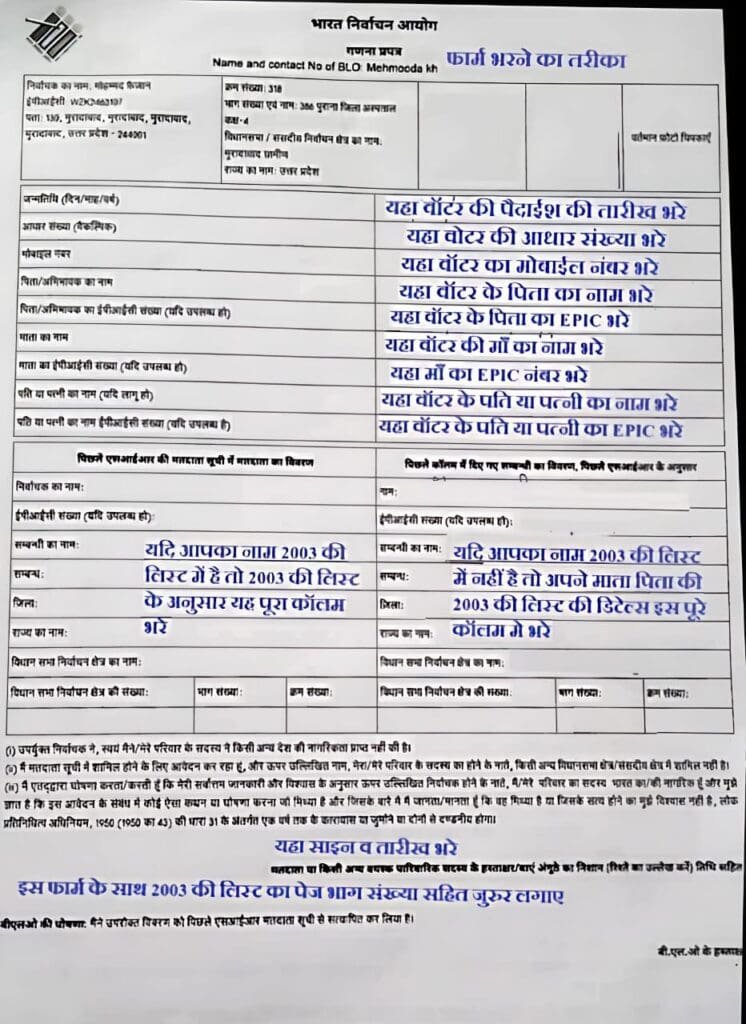 भारत निर्वाचन आयोग
गणना प्रपत्र
Name and contact No of BLO: Mehmooda kh
फार्म भरने का तरीका
निर्वाचक का नाम: मोहम्मद फैजान
ईपीआईसी:
पता: 130, मुरादाबाद, मुरादाबाद, मुरादाबाद,
मुरादाबाद, उत्तर प्रदेश - 244001
क्रम संख्या: 318
भाग संख्या एवं नाम: 366 पुराना जिला अस्पताल
कक्ष-4
विधानसभा / संसदीय निर्वाचन क्षेत्र का नाम:
मुरादाबाद ग्रामीण
राज्य का नाम: उत्तर प्रदेश
वर्तमान फ़ोटो चिपकाएँ
जन्मतिथि (दिन/माह/वर्ष)
यहा वॉटर की पैदाईश की तारीख भरे
आधार संख्या (वैकल्पिक)
यहा वोटर की आधार संख्या भरे
मोबाइल नंबर
यहा वॉटर का मोबाईल नंबर भरे
पिता/अभिभावक का नाम
यहा वॉटर के पिता का नाम भरे
पिता/अभिभावक का ईपीआईसी संख्या (यदि उपलब्ध हो)
यहा वॉटर के पिता का EPIC भरे
माता का नाम
यहा वॉटर की माँ का नाम भरे
माता का ईपीआईसी संख्या (यदि उपलब्ध हो)
यहा माँ का EPIC नंबर भरे
पति या पत्नी का नाम (यदि लागू हो)
यहा वॉटर के पति या पत्नी का नाम भरे
पति या पत्नी का नाम ईपीआईसी संख्या (यदि उपलब्ध है)
यहा वॉटर के पति या पत्नी का EPIC भरे
पिछले एसआईआर की मतदाता सूची में मतदाता का विवरण
निर्वाचक का नाम:
ईपीआईसी संख्या (यदि उपलब्ध हो):
सम्बन्धी का नाम:
सम्बन्ध:
जिला:
राज्य का नाम:
यदि आपका नाम 2003 की
लिस्ट में है तो 2003 की लिस्ट
के अनुसार यह पूरा कॉलम
भरे
विधान सभा निर्वाचन क्षेत्र का नाम:
विधान सभा निर्वाचन क्षेत्र की संख्या:
भाग संख्या:
क्रम संख्या:
पिछले कॉलम में दिए गए सम्बन्धी का विवरण, पिछले एसआईआर के अनुसार
नाम:
ईपीआईसी संख्या (यदि उपलब्ध हो):
सम्बन्धी का नाम:
सम्बन्ध:
जिला:
राज्य का नाम:
यदि आपका नाम 2003 की लिस्ट
में नहीं है तो अपने माता पिता की
2003 की लिस्ट की डिटेल्स इस पूरे
कॉलम मे भरे
विधान सभा निर्वाचन क्षेत्र का नाम:
विधान सभा निर्वाचन क्षेत्र की संख्या:
भाग संख्या:
क्रम संख्या:
(i) उपर्युक्त निर्वाचक ने, स्वयं मैने/मेरे परिवार के सदस्य ने किसी अन्य देश की नागरिकता प्राप्त नहीं की है।
(ii) मैं मतदाता सूची में शामिल होने के लिए आवेदन कर रहा हूं, और ऊपर उल्लिखित नाम, मेरा/मेरे परिवार के सदस्य का होने के नाते, किसी अन्य विधानसभा क्षेत्र/संसदीय क्षेत्र में शामिल नहीं है।
(iii) मैं एतद्द्वारा घोषणा करता/करती हूं कि मेरी सर्वोत्तम जानकारी और विश्वास के अनुसार ऊपर उल्लिखित निर्वाचक होने के नाते, मैं/मेरे परिवार का सदस्य भारत का/की नागरिक हूं और मुझे
ज्ञात है कि इस आवेदन के संबंध में कोई ऐसा कथन या घोषणा करना जो मिथ्या है और जिसके बारे मे मै जानता/मानता हूँ कि वह मिथ्या है या जिसके सत्य होने का मुझे विश्वास नहीं है, लोक
प्रतिनिधित्व अधिनियम, 1950 (1950 का 43) की धारा 31 के अंतर्गत एक वर्ष तक के कारावास या जुर्माने या दोनों से दण्डनीय होगा।
यहा साइन व तारीख भरे
मतदाता या किसी अन्य वयस्क पारिवारिक सदस्य के हस्ताक्षर/बाएं अंगूठे का निशान (रिश्ते का उल्लेख करें) तिथि सहित
इस फार्म के साथ 2003 की लिस्ट का पेज भाग संख्या सहित जुरुर लगाए
बीएलओ की घोषणा: मैंने उपरोक्त विवरण को पिछले एसआईआर मतदाता सूची से सत्यापित कर लिया है।
बी.एल.ओ के हस्ताक्ष